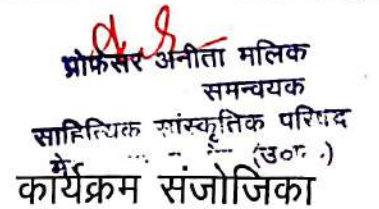 प्रोफेसर अनीता मलिक
समन्वयक
साहित्यिक सांस्कृतिक परिषद
मे
कार्यक्रम संजोजिका